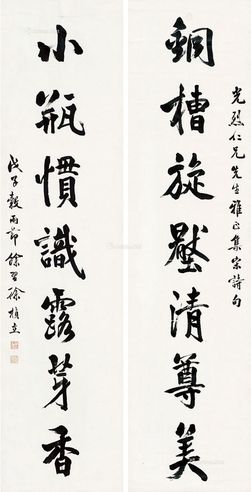 光烈仁兄先生雅正集宋詩句
銅槽旋壓清尊美
小瓶慣識露芽香
戊子穀雨節餘習徐楨立